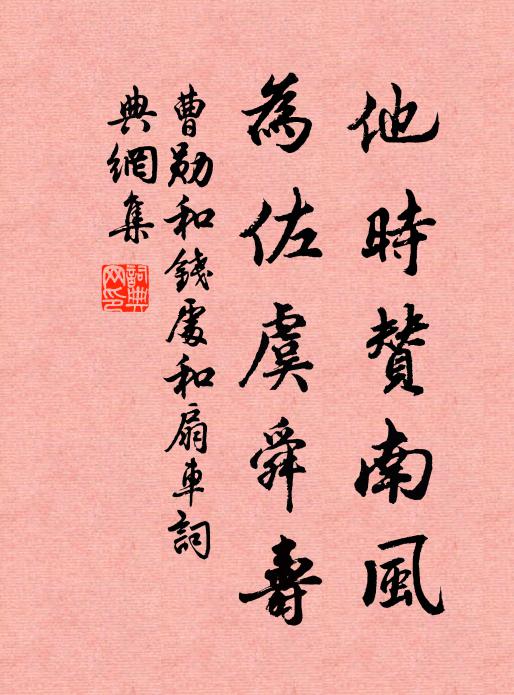 他時贊南風
為佐虞舜壽
曹勛和錢處和扇車詞
典網集
詞典网印